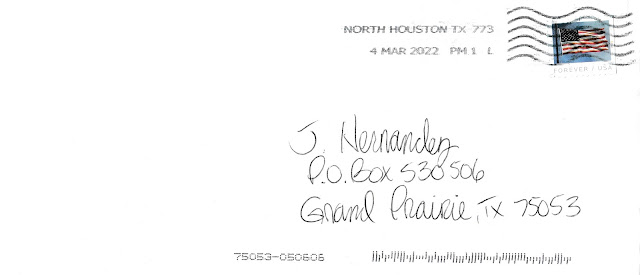 NORTH HOUSTON TX 773
4 MAR 2022 PM 1 L
FOREVER / USA
J. Hernandez
P.O. Box 530506
Grand Prairie, TX 75053
75053-050606